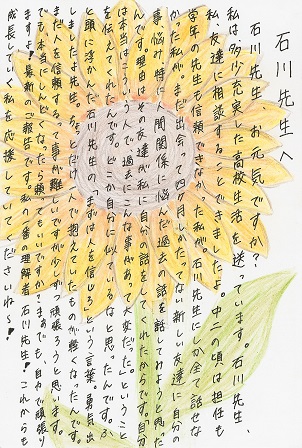 石川先生へ
石川先生、お元気ですか?
私は、多少、充実した高校生活を送っています。石川先生、
私、友達に相談することできましたよ。中二の頃は担任も
学年の先生も信頼できなかった私が。石川先生にしか全く話せな
かった私が。まだ出会って四ヶ月しかたってない新しい友達に自分の
事、悩み、特に人間関係に悩んだ過去の話を話してみようと思った
んです。理由は、その友達が私に自分の話をしてくれたからです。自分
は本当はこういう人で、過去にこんな事があって大変だった。ということ
を伝えてくれたんです。どこか自分に似ているなと思ったんです。ふ
と頭に浮かんだ石川先生の「まずは人を信じろ」という言葉。勇気出
しましたよ先生。ちょっとだけ、抱えていたものが軽くなったんです。
まだ人を信頼するって事が難しいですが、少しずつ頑張ろうと思います。
でも本当にしんどくなったら頼ってもいいですか?まあでも、自力で頑張り
ますよ!最新のご報告です。私の一番の理解者、石川先生!これからも
成長していく私を応援していてくださいね〜!